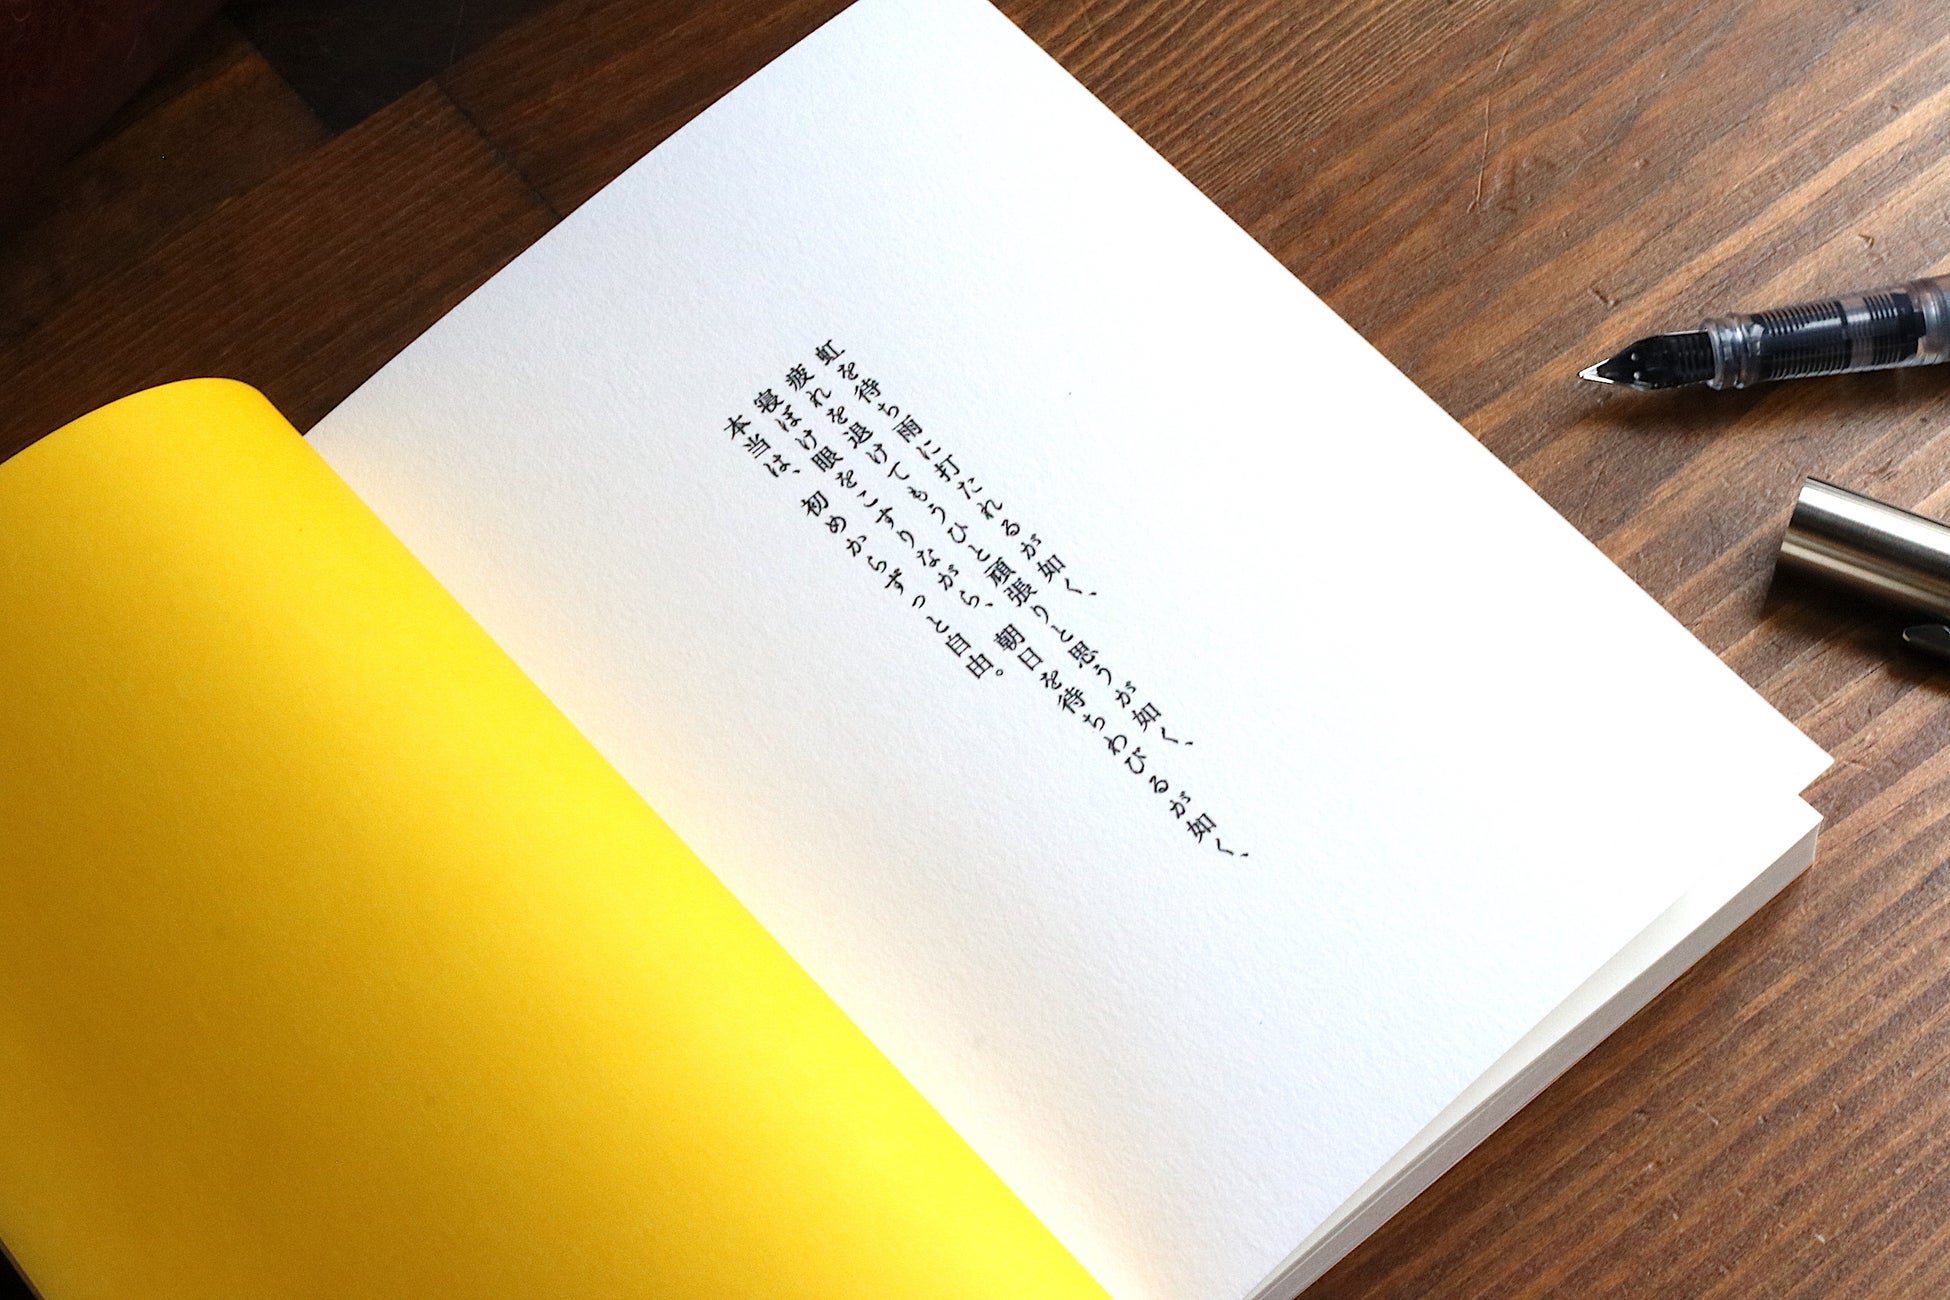 虹を待ち雨に打たれるが如く、
疲れを退けてもうひと頑張りと思うが如く、
寝ぼけ眼をこすりながら、朝日を待ちわびるが如く、
本当は、初めからずっと自由。